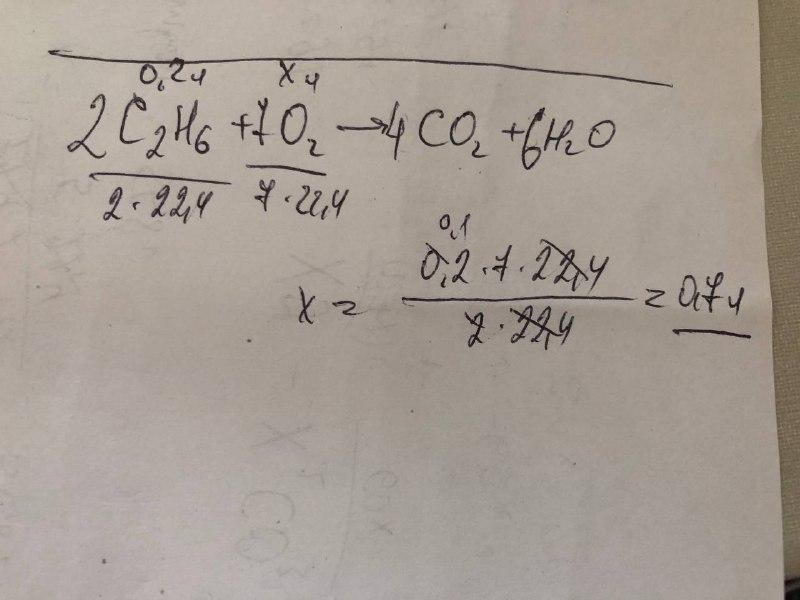 0,2л xл
2C₂H₆ + 7O₂ → 4CO₂ + 6H₂O
2·22,4 7·22,4
0,1
0,2·7·22,4
x = = 0,7л
2·22,4